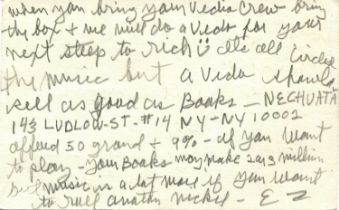 when you bring your Vedio Crew bring
the box & we will do a Vedo for your
next step to rich it's all Circles
the music but a Vido should
sell as good as Books - NECHUATA
143 LUDLOW-ST. #14 NY-NY 10002
offerd 50 grand + 90% - if you want
to play - your Books may make 2 or 3 million
but music is a lot more if you want
to roll anatan nickel - E Z